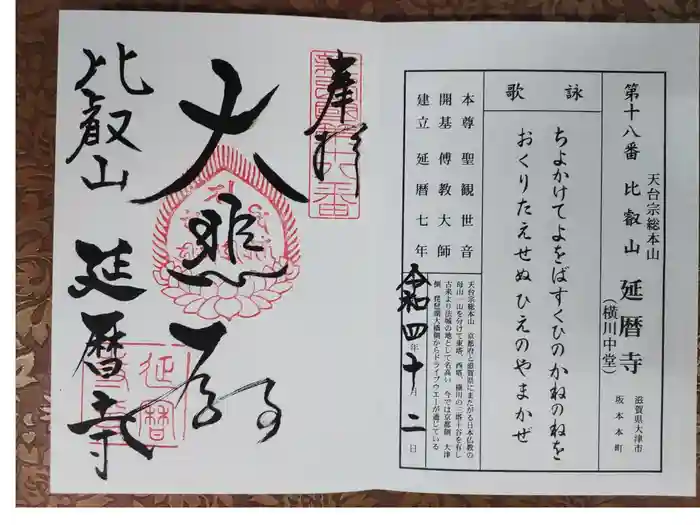 第十八番
天台宗総本山
比叡山 延暦寺
(横川中堂)
滋賀県大津市
坂本本町
詠歌
ちよかけてよをばすくひのかねのねを
おくりたえせぬひえのやまかぜ
本尊 聖観世音
開基 傳教大師
建立 延暦七年
天台宗総本山 京都府と滋賀県にまたがる日本仏教の
母山 一山を分けて東塔、西塔、横川の三塔十谷を有し
古来より法城の地として名高い 今では京都側、大津
側、琵琶湖大橋側からドライブウエーが通じている
令和四年十月二日
奉拝
大悲殿
比叡山 延暦寺